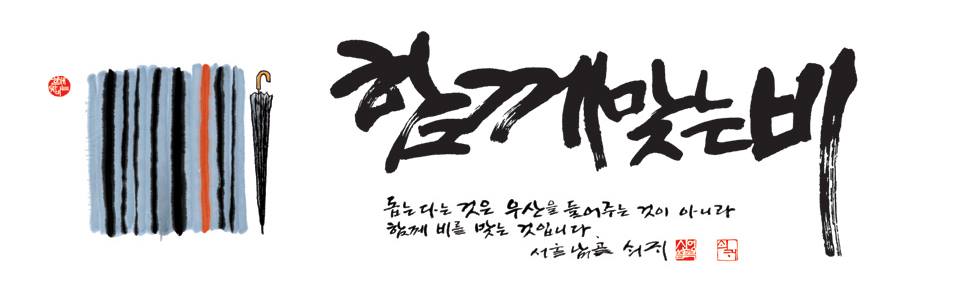 함께맞는비
돕는다는 것은 우산을 들어주는 것이 아니라
함께 비를 맞는 것입니다.
서호 쇠귀